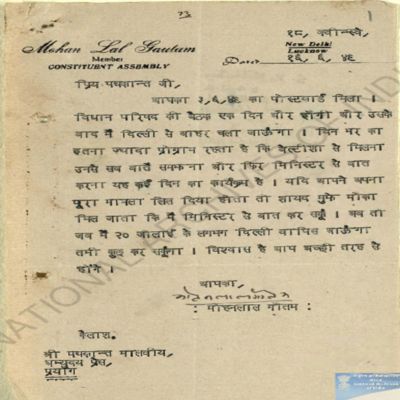 73
1
Mohan Lal Gautam
Member
CONSTITUENT ASSEMBLY
१८, क्वीन्सवे,
New Delhi
Lucknow
Dated १६.६.४६
प्रिय पद्मकान्त जी,
आपका ३.६.४६ का पोस्टकार्ड मिला ।
विधान परिषद की बैठक एक दिन और होगी और उसके
बाद मैं दिल्ली से बाहर चला जाऊंगा । दिन भर का
इतना ज्यादा प्रोग्राम रहता है कि से मिलना
उनसे सब बातें समझना और फिर मिनिस्टर से बात
करना यह कई दिन का कार्यक्रम है । यदि आपने अपना
पूरा मामला लिख दिया होता तो शायद मुझे मौका
मिल जाता कि मैं मिनिस्टर से बात कर सकूं । अब तो
जब मैं २० जौलाई के लगभग दिल्ली वापिस आऊंगा
तभी कुछ कर सकूंगा । विश्वास है आप अच्छी तरह से
होंगे ।
आपका,
मोहनलाल गौतम
: मोहनलाल गौतम :
कैलाश.
श्री पद्मकान्त मालवीय,
अभ्युदय प्रेस,
प्रयाग
NATIONAL ARCHIVES OF INDIA